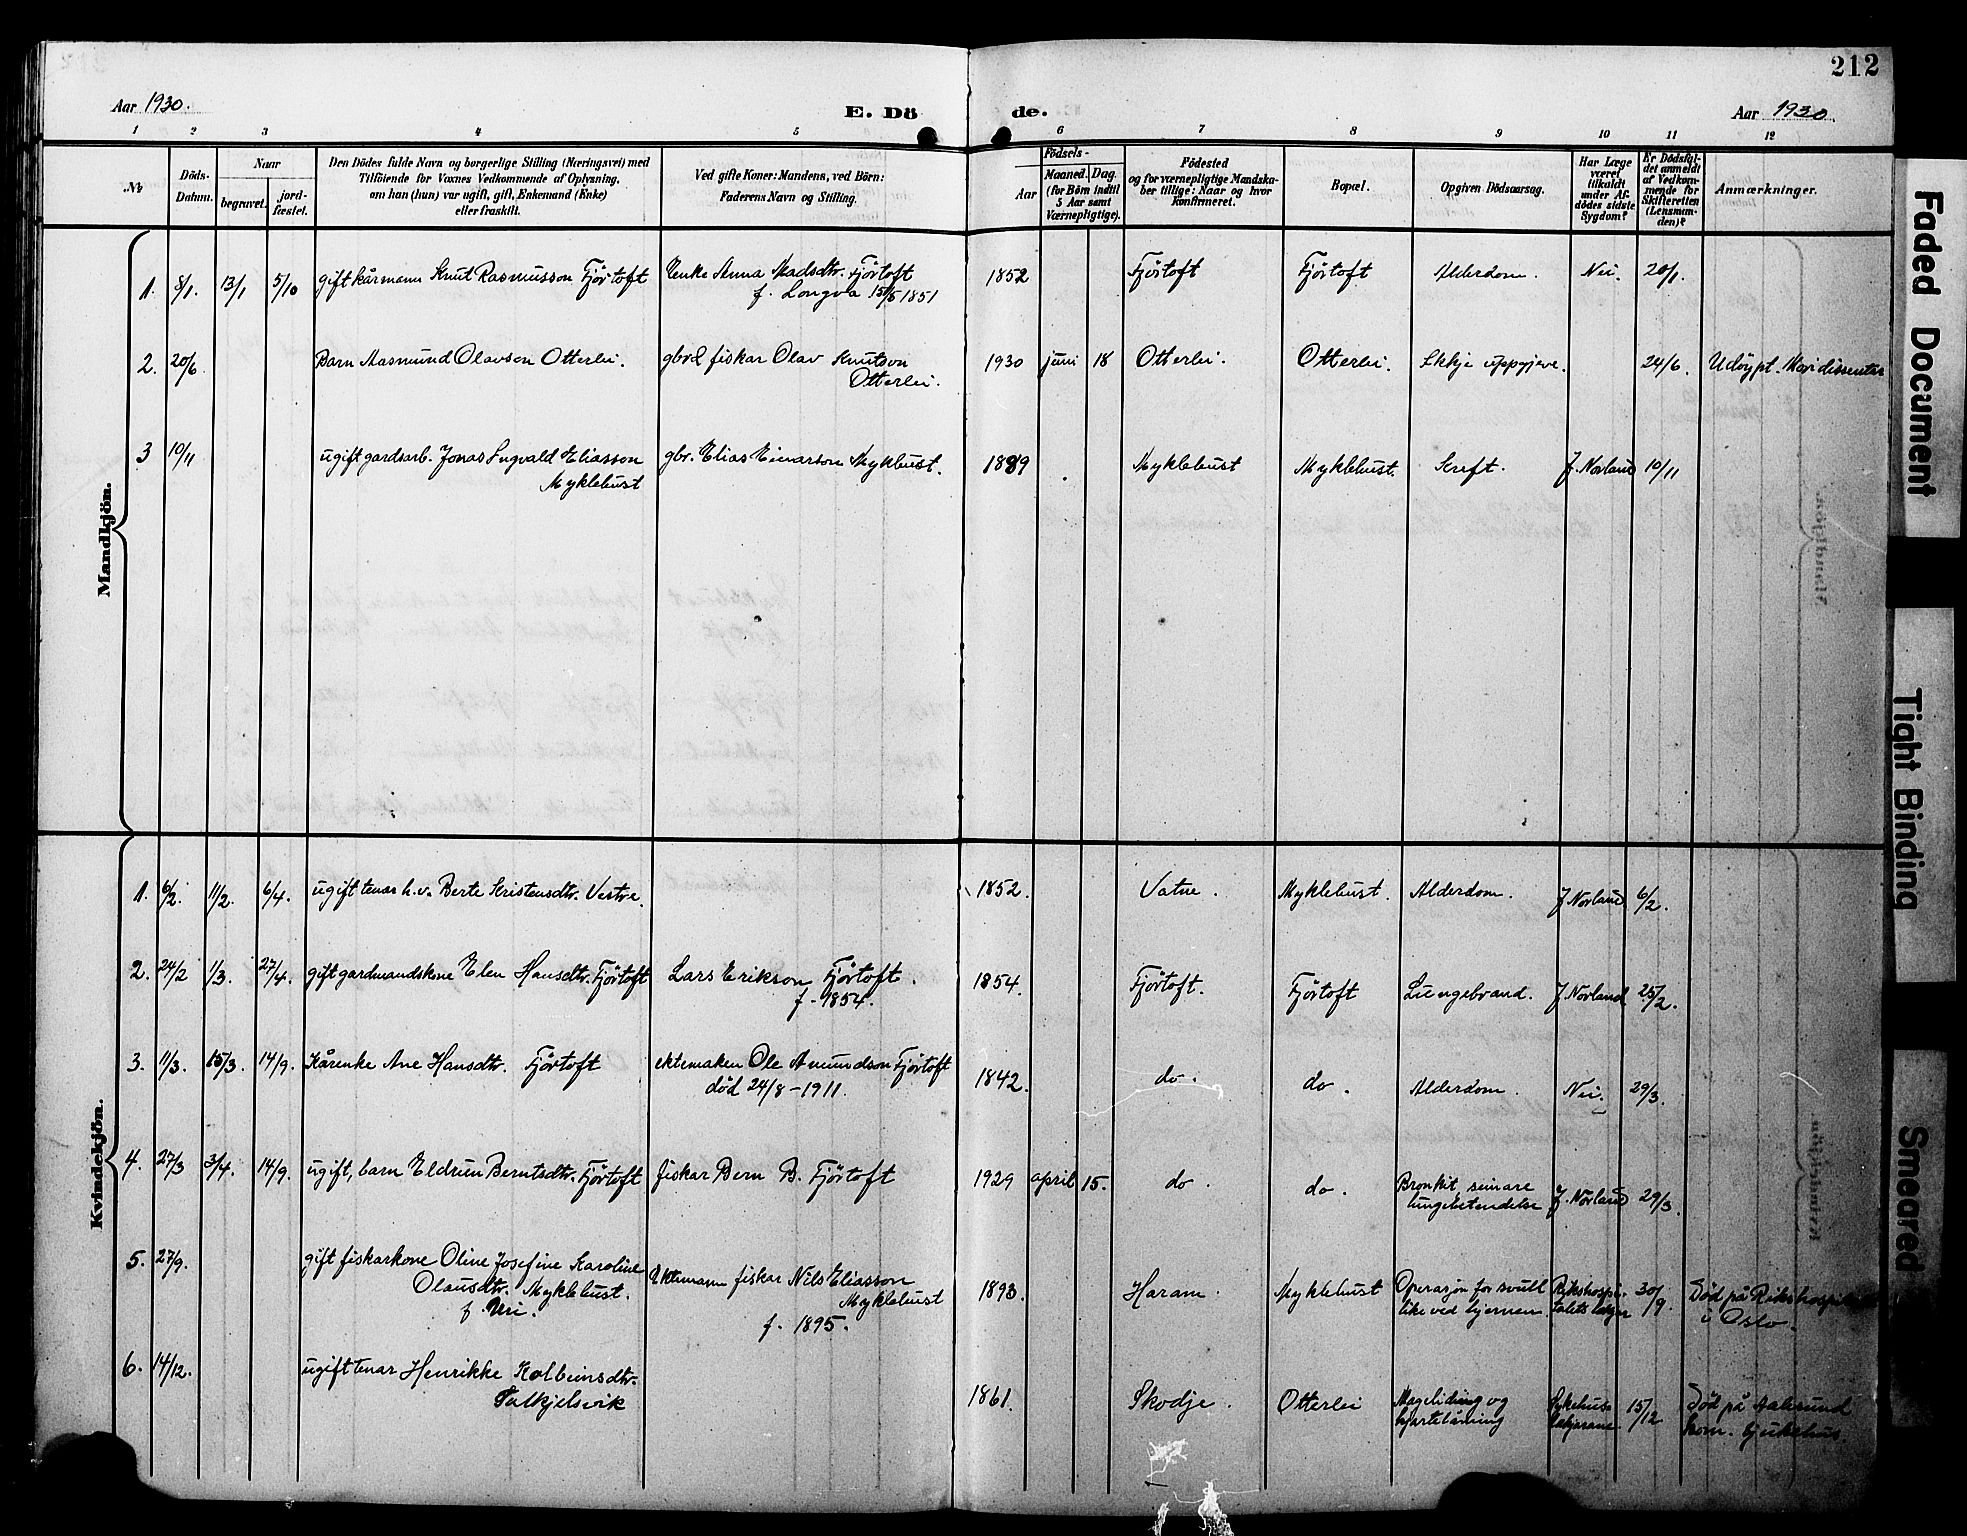 212
Aar 1930.
E. Dö de.
Aar 1930.
1 2 3 4 5 6 7 8 9 10 11 12
№
Döds-
Datum.
Naar
begravet.
jord-
fæstet.
Den Dödes fulde Navn og borgerlige Stilling (Næringsvei) med
Tilföiende for Voxnes Vedkommende af Oplysning,
om han (hun) var ugift, gift, Enkemand (Enke)
eller fraskilt.
Ved gifte Koner: Mandens, ved Börn:
Faderens Navn og Stilling.
Födsels-
Aar
Maaned. Dag.
(for Börn indtil
5 Aar samt
Værnepligtige).
Födested
og for værnepligtige Mandska-
ber tillige: Naar og hvor
konfirmeret.
Bopæl.
Opgiven Dödsaarsag.
Har Læge
været
tilkaldt
under Af-
dödes sidste
Sygdom?
Er Dödsfal-
det anmeldt
af Vedkom-
mende for
Skifteretten
(Lensman-
den)?
Anmærkninger.
Mandkjön.
1. 8/1. 13/1 5/10 gift kårmann Knut Rasmusson Fjörtoft Enke Anna Madsdtr. Fjörtoft 1852 Fjörtoft Fjörtoft Alderdom. Nei. 20/1.
f. Longva 15/5 1851
2. 20/6. Barn Aasmund Olavson Otterlei. gbrd fiskar Olav Knutson 1930 juni 18 Otterlei. Otterlei. Ikkje uppgjeve. 24/6. Udöypt. Mori dissentar
Otterlei.
3 10/11 ugift gardsarb. Jonas Ingvald Eliasson gbr. Elias Einarson Myklebust. 1889 Myklebust Myklebust. Kreft. J. Norland 10/11
Myklebust
Kvindekjön.
1. 6/2. 11/2. 6/4. ugift tenar h.v. Berte Kristensdtr. Vestre. 1852. Vatne. Myklebust. Alderdom. J Norland 6/2.
2. 24/2 1/3. 27/4. gift gardmandskone Elen Hansdtr. Fjörtoft Lars Erikson Fjörtoft. 1854. Fjörtoft. Fjörtoft Lungebrand. J. Norland 25/2.
f. 1854.
3. 11/3. 15/3. 14/9. Kårenke Ane Hansdtr. Fjörtoft ektemaken Ole Amundson Fjörtoft 1842. do. do. Alderdom. Nei. 29/3.
död 24/8-1911.
4. 27/3 3/4. 14/9. ugift, barn Eldrun Berntsdtr. Fjörtoft fiskar Bern B. Fjörtoft 1929 april 15. do. do. Bronkit seinare J. Norland 29/3.
lungebetendelse
5. 27/9. gift fiskarkone Oline Josefine Karoline Ektemann fiskar Nils Eliasson 1893. Haram. Myklebust Operasjon for svull Rikshospi- 30/9. Död på Rikshospitalet
Olausdtr. Myklebust. Myklebust like ved hjernen talets læger i Oslo.
f. Uri. f. 1895.
6. 14/12. ugift tenar Henrikke Kolbeinsdtr. 1861. Skodje. Otterlei Mageliding og Sykehus- 15/12 Död på Aalesund
Salkjelsvik hjartelåming lækjarane kom. sjukehus.
Faded Document
Tight Binding
Smeared